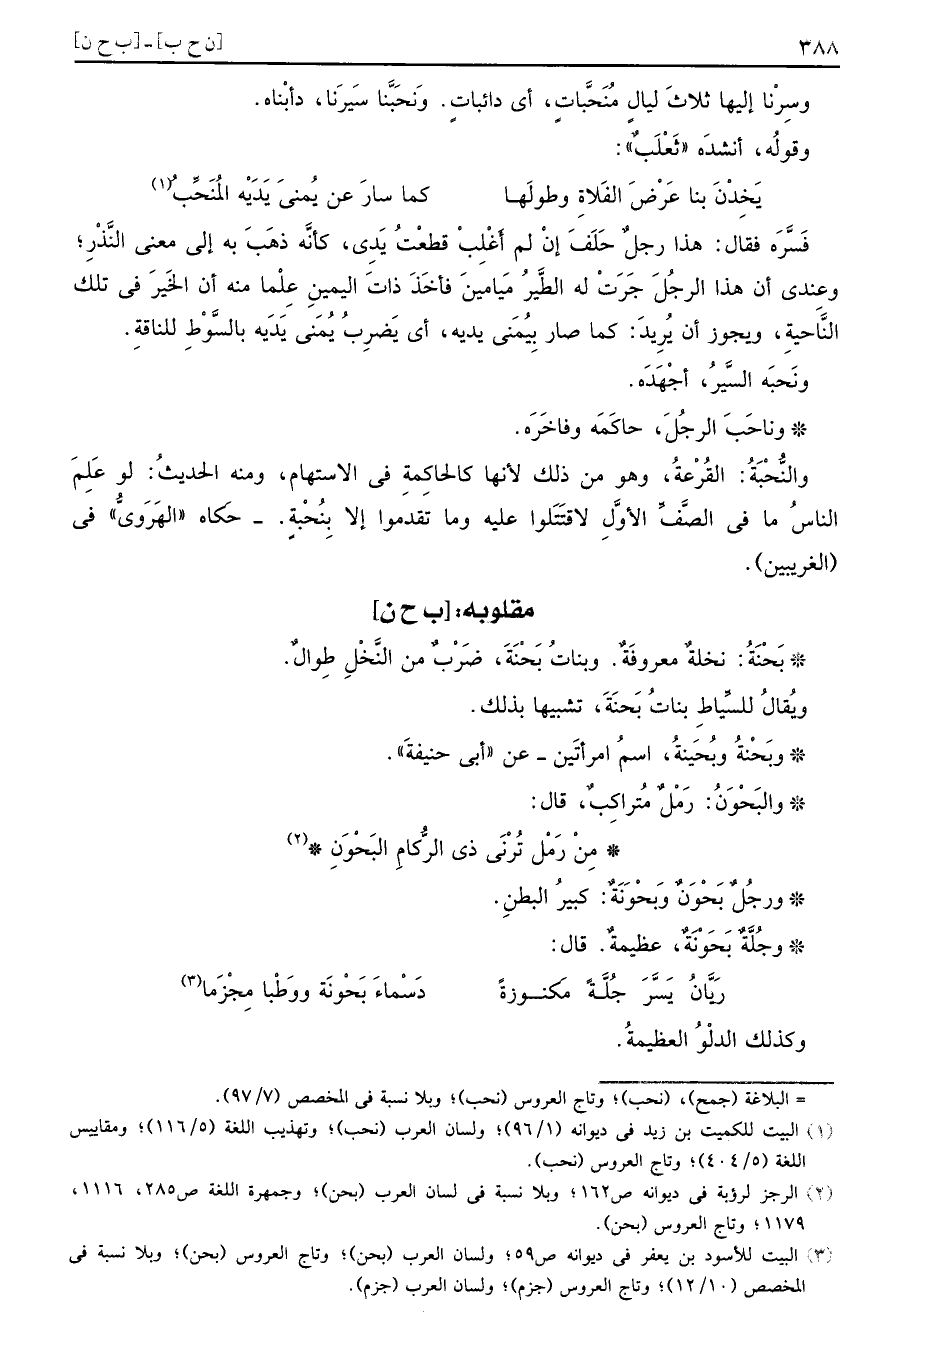 ٣٨٨
[ن ح ب] ـ [ب ح ن]
وسِرْنا إليها ثلاثَ ليالٍ مُنَحَّباتٍ، أى دائباتٍ. ونَحَبَّنا سَيرَنا، دأَبْناه.
وقولُه، أنشدَه «ثَعْلَبٌ»:
يَخِدْنَ بنا عَرْضَ الفَلاةِ وطولَها كما سارَ عن يُمنىَ يَدَيْه المُنَحِّبُ(١)
فَسَّرَه فقال: هذا رجلٌ حَلَفَ إنْ لم أَغْلِبْ قطعْتُ يَدِى، كأنَّه ذهَبَ به إلى معنى النَّذْرِ؛
وعِندى أن هذا الرجُلَ جَرَتْ له الطَّيرُ مَيامينَ فأخَذَ ذاتَ اليمينِ عِلْما منه أن الخَيرَ فى تلك
النَّاحيةِ، ويجوز أن يُريدَ: كما صار بِيُمْنَى يديه، أى يَضرِبُ يُمْنَى يَدَيه بالسَّوْطِ للناقةِ.
ونَحبَه السَّيرُ، أجْهَدَه.
* وناحَبَ الرجُلَ، حاكَمَه وفاخَرَه.
والنُّحْبَةُ: القُرْعةُ، وهو من ذلك لأنها كالحاكِمةِ فى الاستهام، ومنه الحديثُ: لو عَلِمَ
الناسُ ما فى الصَّفِّ الأوَّلِ لاقتَتَلوا عليه وما تقدموا إلا بِنُحْبةٍ. ـ حكاه «الهَرَوىُّ» فى
(الغريبين).
مقلوبه: [ب ح ن]
* بَحْنَةُ: نخلةٌ معروفَةٌ. وبناتُ بَحْنَةَ، ضَرْبٌ من النَّخْلِ طِوالٌ.
ويُقالُ للسِّياطِ بناتُ بَحنَةَ، تشبيها بذلك.
* وبَحْنةُ وبُحَينةُ، اسمُ امرأتَين ـ عن «أبى حنيفةَ».
* والبَحْوَنُ: رَمْلٌ مُتراكِبٌ، قال:
* مِنْ رَمْلِ تُرْنَى ذى الرُّكامِ البَحْوَنِ *(٢)
* ورجُلٌ بَحْوَنٌ وبَحْوَنَةٌ: كبيرُ البطنِ.
* وجُلَّةٌ بَحَوْنَةٌ، عظيمةٌ. قال:
رَيَّانُ يَسَّرَ جُلَّةً مكنـوزةً دَسْماءَ بَحْوْنَة ووَطْبا مِجْزَما(٣)
وكذلك الدلْوُ العظيمةُ.
= البلاغة (جمح)، (نحب)؛ وتاج العروس (نحب)؛ وبلا نسبة فى المخصص (٩٧/٧).
(١) البيت للكميت بن زيد فى ديوانه (٩٦/١)؛ ولسان العرب (نحب)؛ وتهذيب اللغة (١١٦/٥)؛ ومقاييس
اللغة (٤٠٤/٥)؛ وتاج العروس (نحب).
(٢) الرجز لرؤبة فى ديوانه ص١٦٢؛ وبلا نسبة فى لسان العرب (بحن)؛ وجمهرة اللغة ص٢٨٥، ١١١٦،
١١٧٩؛ وتاج العروس (بحن).
(٣) البيت للأسود بن يعفر فى ديوانه ص٥٩؛ ولسان العرب (بحن)؛ وتاج العروس (بحن)؛ وبلا نسبة فى
المخصص (١٢/١٠)؛ وتاج العروس (جزم)؛ ولسان العرب (جزم).